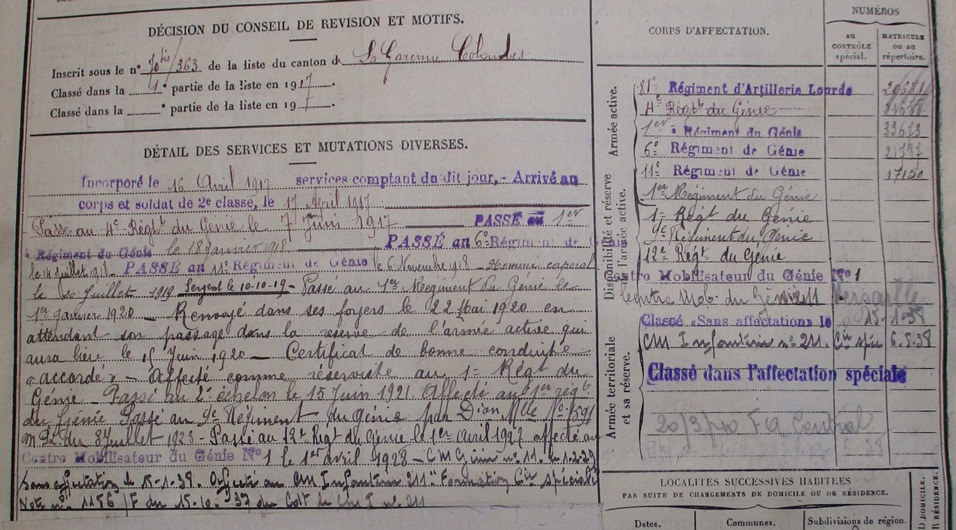 DÉCISION DU CONSEIL DE REVISION ET MOTIFS.
Inscrit sous le n° 70bis/363 de la liste du canton de La Garenne Colombes
Classé dans la 1e partie de la liste en 1917
Classé dans la partie de la liste en 19
DÉTAIL DES SERVICES ET MUTATIONS DIVERSES.
Incorporé le 16 Avril 1917 services comptant du dit jour, - Arrivé au
corps et soldat de 2e classe, le 17 Avril 1917
Passé au 4e Régt du Génie le 7 Juin 1917 PASSÉ au 1er
Régiment du Génie le 18 Janvier 1918 PASSÉ au 6e Régiment de Génie
le 14 Juillet 1918 - PASSÉ au 11e Régiment de Génie le 6 Novembre 1918 - Nommé caporal
le Juillet 1919 Sergent le 10-10-19 - Passé au 1er Régiment du Génie le
1er Janvier 1920 - Renvoyé dans ses foyers le 22 Mai 1920 en
attendant son passage dans la réserve de l'armée active qui
aura lieu le 15 Juin 1920 - Certificat de bonne conduite
"accordé" - Affecté comme réserviste au 1er Régt du
Génie - Passé au 2e échelon le 15 Juin 1921. Affecté au 1er rég
du Génie Passé au 9e Régiment du Génie par Dion Mlle
du 8 Juillet 1923 - Passé au 12e Régt du Génie le 1er Avril 1927 affecté au
Centre Mobilisateur du Génie N° 1 le 1er avril 1928 - CM Génie n° 11. le 1.2.33
Sans affectation le 15-1-38. Affecté au CM Infanterie 211 "Formation Cie spéciale"
Note n° 1156 /F du du Colt de CM I n° 211
CORPS D'AFFECTATION.
NUMÉROS
AU CONTRÔLE spécial.
MATRICULE ou au répertoire.
Armée active.
81e Régiment d'Artillerie Lourde
4e Régt du Génie
1er Régiment du Génie 33673
6e Régiment de Génie
11e Régiment de Génie 17150
Disponibilité et réserve de l'armée active.
1er Régiment du Génie
1er Régt du Génie
9e Régiment du Génie
12e Régt du Génie
Centre Mobilisateur du Génie N° 1
Centre Mob. du Génie n° 11 Versailles
Classé «Sans affectation» le 15-1-38
CM Infanterie n° 211. Cie sple 6.5.38
Armée territoriale et sa réserve.
Classé dans l'affectation spéciale
LOCALITÉS SUCCESSIVES HABITÉES
PAR SUITE DE CHANGEMENTS DE DOMICILE OU DE RÉSIDENCE.
Dates.
Communes.
Subdivisions de région.
D DOMICILE.
RÉSIDENCE.